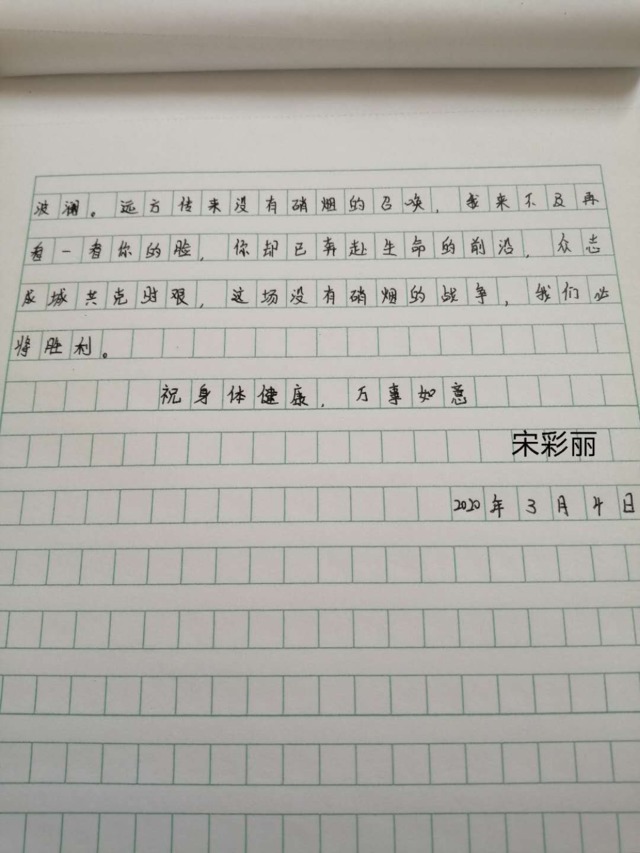 波澜。远方传来没有硝烟的召唤，我来不及再
看一看你的脸，你却已奔赴生命的前沿，众志
成城共克时艰，这场没有硝烟的战争，我们必
将胜利。
祝身体健康，万事如意
宋彩丽
2020年3月4日